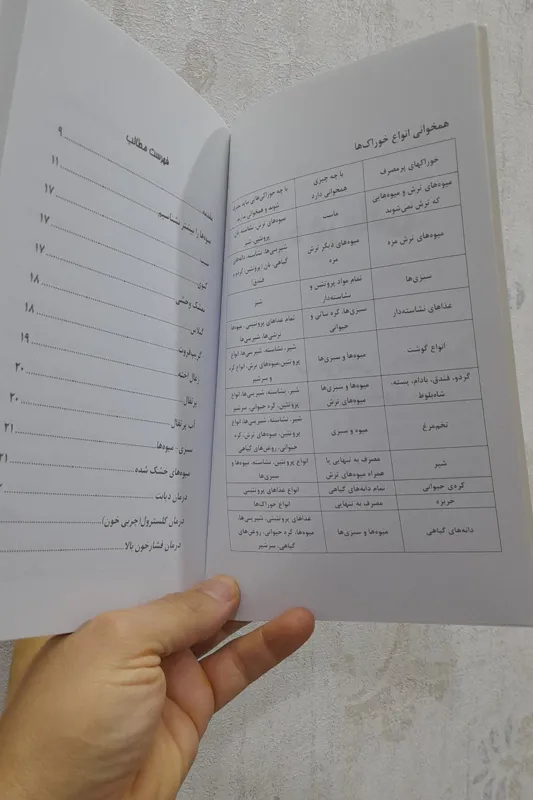 همخوانی انواع خوراک‌ها
خوراکهای پرمصرف
با چه چیزی
همخوانی دارد
با چه خوراکی‌های نباید مصرف
شوند و همخوانی ندارد
میوه‌های ترش و میوه‌هایی
که ترش نمی‌شوند
ماست
میوه‌های ترش، نشاسته، نان
پروتئین، شیر
میوه‌های ترش مزه
میوه‌های دیگر ترش
مزه
شیرینی‌ها، نشاسته، دانه‌های
گیاهی، نان (پروتئین، گردو و
فندق)
سبزی‌ها
تمام مواد پروتئین و
نشاسته‌دار
شیر
غذاهای نشاسته‌دار
سبزی‌ها، کره نباتی و
حیوانی
تمام غذاهای پروتئینی، میوه‌ها
ترشی‌ها، شیرینی‌ها
انواع گوشت
میوه‌ها و سبزی‌ها
شیر، نشاسته، شیرینی‌ها، انواع
پروتئین، میوه‌های ترش، انواع کره
و سرشیر
گردو، فندق، بادام، پسته،
شاه‌بلوط
میوه‌ها و سبزی‌ها
میوه‌های ترش
شیر، نشاسته، شیرینی‌ها، انواع
پروتئین، کره حیوانی، سرشیر
تخم‌مرغ
میوه و سبزی
شیر، نشاسته، شیرینی‌ها، انواع
پروتئین، میوه‌های ترش، کره
حیوانی، روغن‌های گیاهی
شیر
مصرف به تنهایی یا
همراه میوه‌های ترش
انواع پروتئین، نشاسته، میوه‌ها و
سبزی‌ها
کره‌ی حیوانی
تمام دانه‌های گیاهی
انواع غذاهای پروتئینی
خربزه
مصرف به تنهایی
انواع خوراک‌ها
دانه‌های گیاهی
میوه‌ها و سبزی‌ها
غذاهای پروتئینی، شیرینی‌ها،
میوه‌ها، کره حیوانی، روغن‌های
گیاهی، سرشیر
فهرست مطالب
مقدمه ۹
میوه‌ها را بیشتر بشناسیم ۱۱
سیب ۱۷
کیوی ۱۷
تمشک وحشی ۱۷
گیلاس ۱۸
گریپ‌فروت ۱۸
زغال اخته ۱۹
پرتقال ۲۰
آب پرتقال ۲۰
سبزی - میوه‌ها ۲۱
میوه‌های خشک شده ۲۱
درمان دیابت ۲
درمان کلسترول (چربی خون)
درمان فشار خون بالا